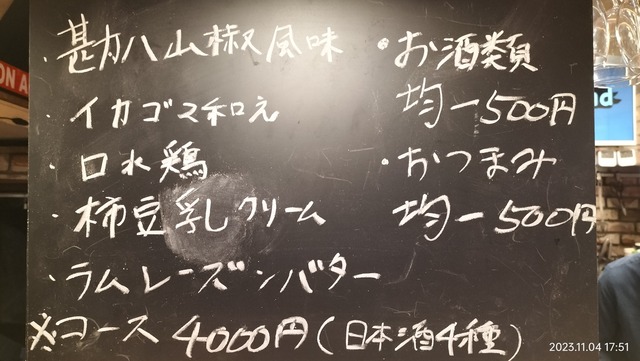 ・勘八山椒風味
・イカゴマ和え
・口水鶏
・柿豆乳クリーム
・ラムレーズンバター
・お酒類
均一500円
・おつまみ
均一500円
※コース 4000円(日本酒4種)
2023.11.04 17:51